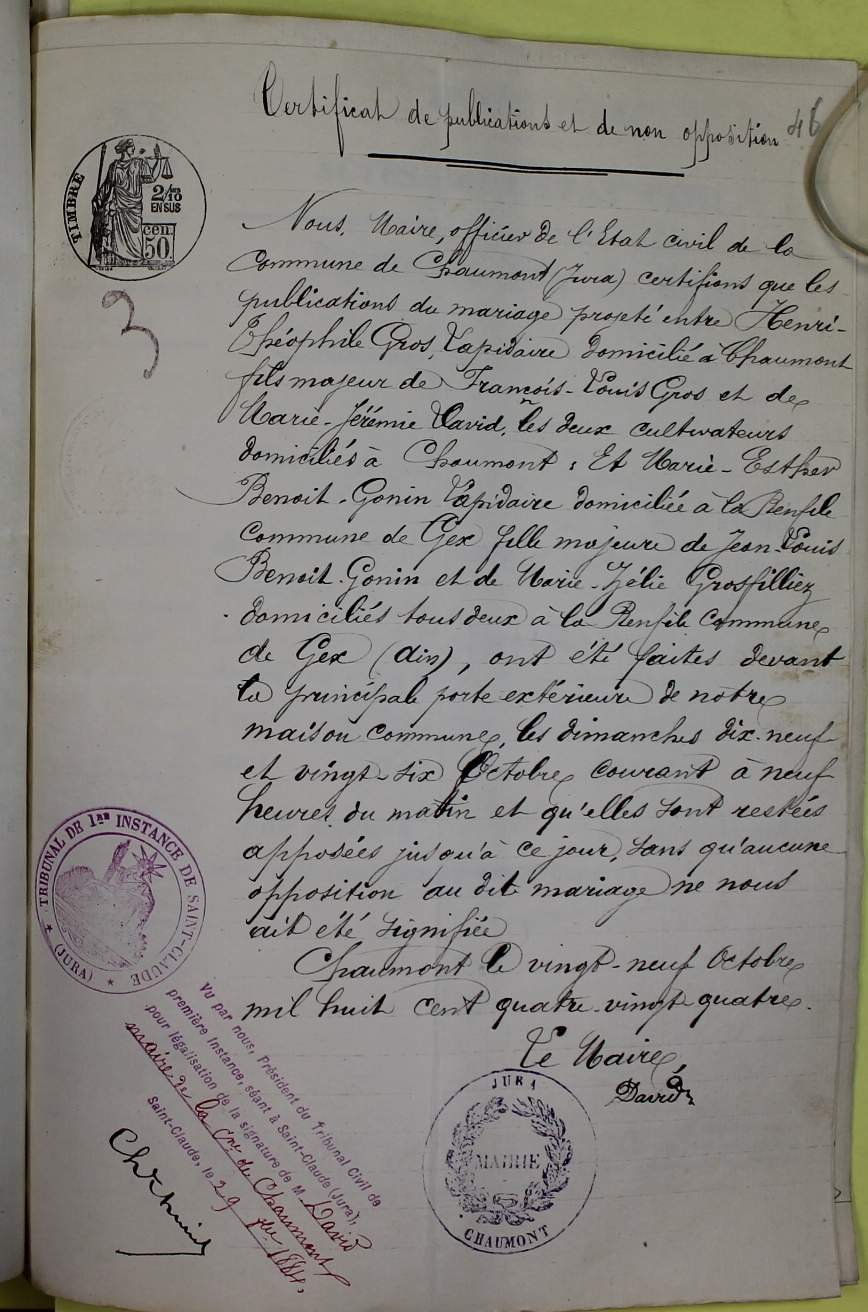 Certificat de publications et de non opposition
46
TIMBRE
2/10
EN SUS
cen
50
3
Nous, Maire, officier de l'Etat civil de la
Commune de Chaumont (Jura) certifions que les
publications du mariage projeté entre Henri-
Théophile Gros, Lapidaire domicilié à Chaumont
fils majeur de François-Louis Gros et de
Marie-Jérémie David, les deux cultivateurs
domiciliés à Chaumont ; Et Marie-Esther
Benoit-Gonin Lapidaire domiciliée à la Renfile
Commune de Gex fille majeure de Jean-Louis
Benoit-Gonin et de Marie-Zélie Grosfilliez
domiciliés tous deux à la Renfile Commune
de Gex (Ain), ont été faites devant
la principale porte extérieure de notre
maison commune, les dimanches dix-neuf
et vingt-six Octobre courant à neuf
heures du matin et qu'elles sont restées
apposées jusqu'à ce jour, sans qu'aucune
opposition au dit mariage ne nous
ait été signifiée
Chaumont le vingt-neuf Octobre
mil huit cent quatre-vingt-quatre.
Le Maire,
David
TRIBUNAL DE 1ère INSTANCE DE SAINT-CLAUDE
(JURA)
Vu par nous, Président du Tribunal Civil de
première Instance, séant à Saint-Claude (Jura),
pour légalisation de la signature de M. David
maire de la Cne de Chaumont
Saint-Claude, le 29 1884.
JURA
MAIRIE
CHAUMONT